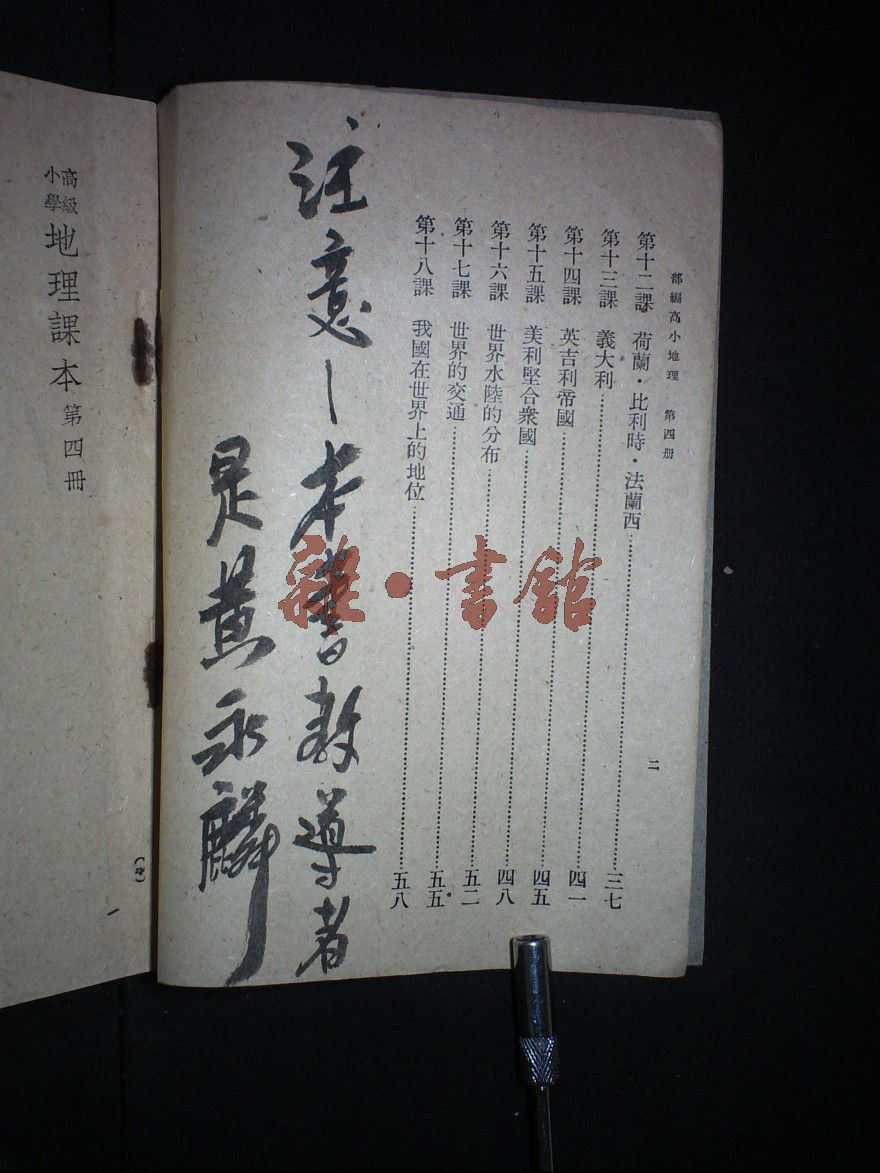 部編高小地理 第四册
第十二課 荷蘭・比利時・法蘭西……三七
第十三課 義大利……四一
第十四課 英吉利帝國……四五
第十五課 美利堅合衆國……四八
第十六課 世界水陸的分布……五二
第十七課 世界的交通……五五
第十八課 我國在世界上的地位……五八
二
注意—本書教導者
是黄永麟
高級
小學
地理課本 第四冊
雜・書館